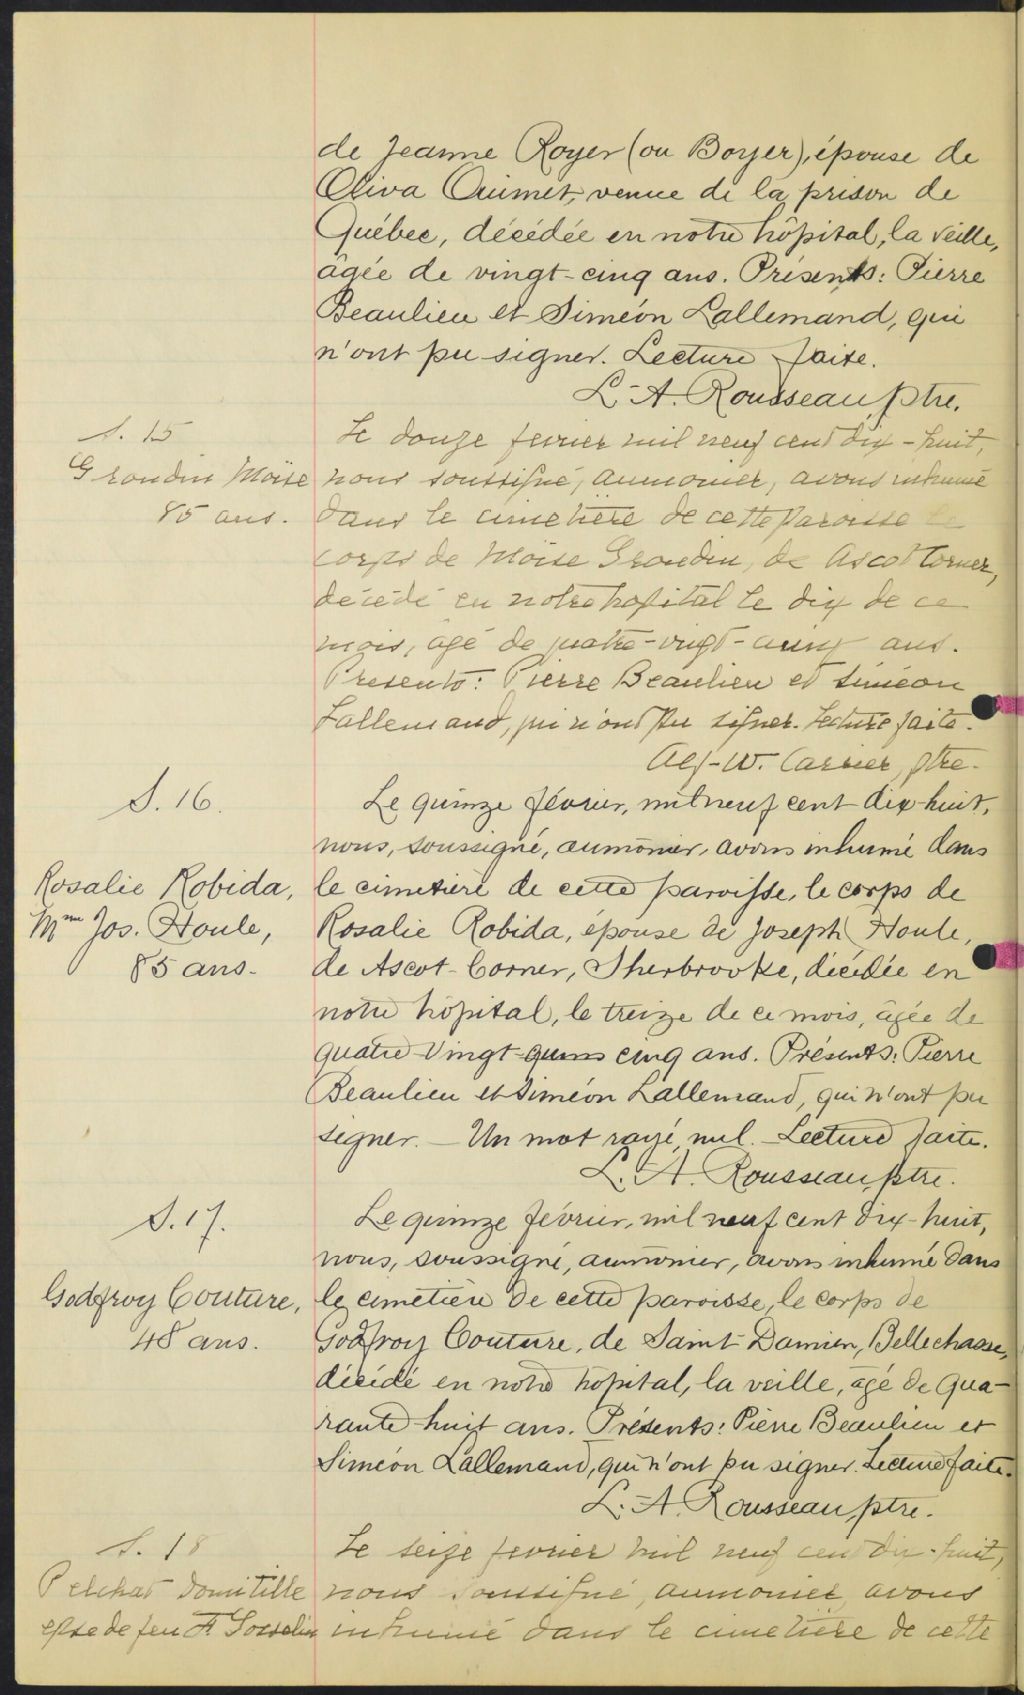 de Jeanne Royer (ou Boyer), épouse de
Oliva Ouimet, venue de la prison de
Québec, décédée en notre hôpital, la veille,
âgée de vingt-cinq ans. Présents: Pierre
Beaulieu et Siméon Lallemand, qui
n'ont pu signer. Lecture faite.
L.-A. Rousseau, ptre.
S. 15
Grondin Moïse
85 ans.
Le douze fevrier mil neuf cent dix-huit,
nous soussigné, aumonier, avons inhumé
dans le cimetière de cette paroisse le
corps de Moïse Grondin, de Ascot Corner,
décédé en notre hopital le dix de ce
mois, agé de quatre-vingt-cinq ans.
Presents: Pierre Beaulieu et Siméon
Lallemand, qui n'ont pu signer. Lecture faite.
Alf-W. Carrier, ptre.
S. 16.
Rosalie Robida,
Mme Jos. Houle,
85 ans.
Le quinze février, mil neuf cent dix-huit,
nous, soussigné, aumônier, avons inhumé dans
le cimetière de cette paroisse, le corps de
Rosalie Robida, épouse de Joseph Houle,
de Ascot-Corner, Sherbrooke, décédée en
notre hôpital, le treize de ce mois, âgée de
quatre-vingt cinq ans. Présents: Pierre
Beaulieu et Siméon Lallemand, qui n'ont pu
signer. — Un mot rayé, nul. — Lecture faite.
L.-A. Rousseau, ptre.
S. 17.
Godfroy Couture,
48 ans.
Le quinze février, mil neuf cent dix-huit,
nous, soussigné, aumônier, avons inhumé dans
le cimetière de cette paroisse, le corps de
Godfroy Couture, de Saint-Damien, Bellechasse,
décédé en notre hôpital, la veille, âgé de qua-
rante-huit ans. Présents: Pierre Beaulieu et
Siméon Lallemand, qui n'ont pu signer. Lecture faite.
L.-A. Rousseau, ptre.
S. 18
Pelchat Domitille
epse de feu F. Gosselin
Le seize fevrier mil neuf cent dix-huit,
nous soussigné, aumonier, avons
inhumé dans le cimetière de cette